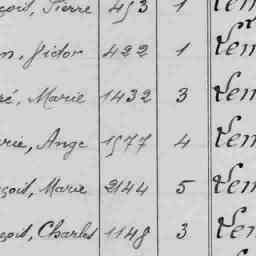 çois, Pierre 453 1 Lem
n, Jidor 422 1 Lem
ré, Marie 1432 3 Lem
rie, Ange 1577 4 Lem
çois, Marie 2144 5 Lem
çois, Charles 1148 3 Lem